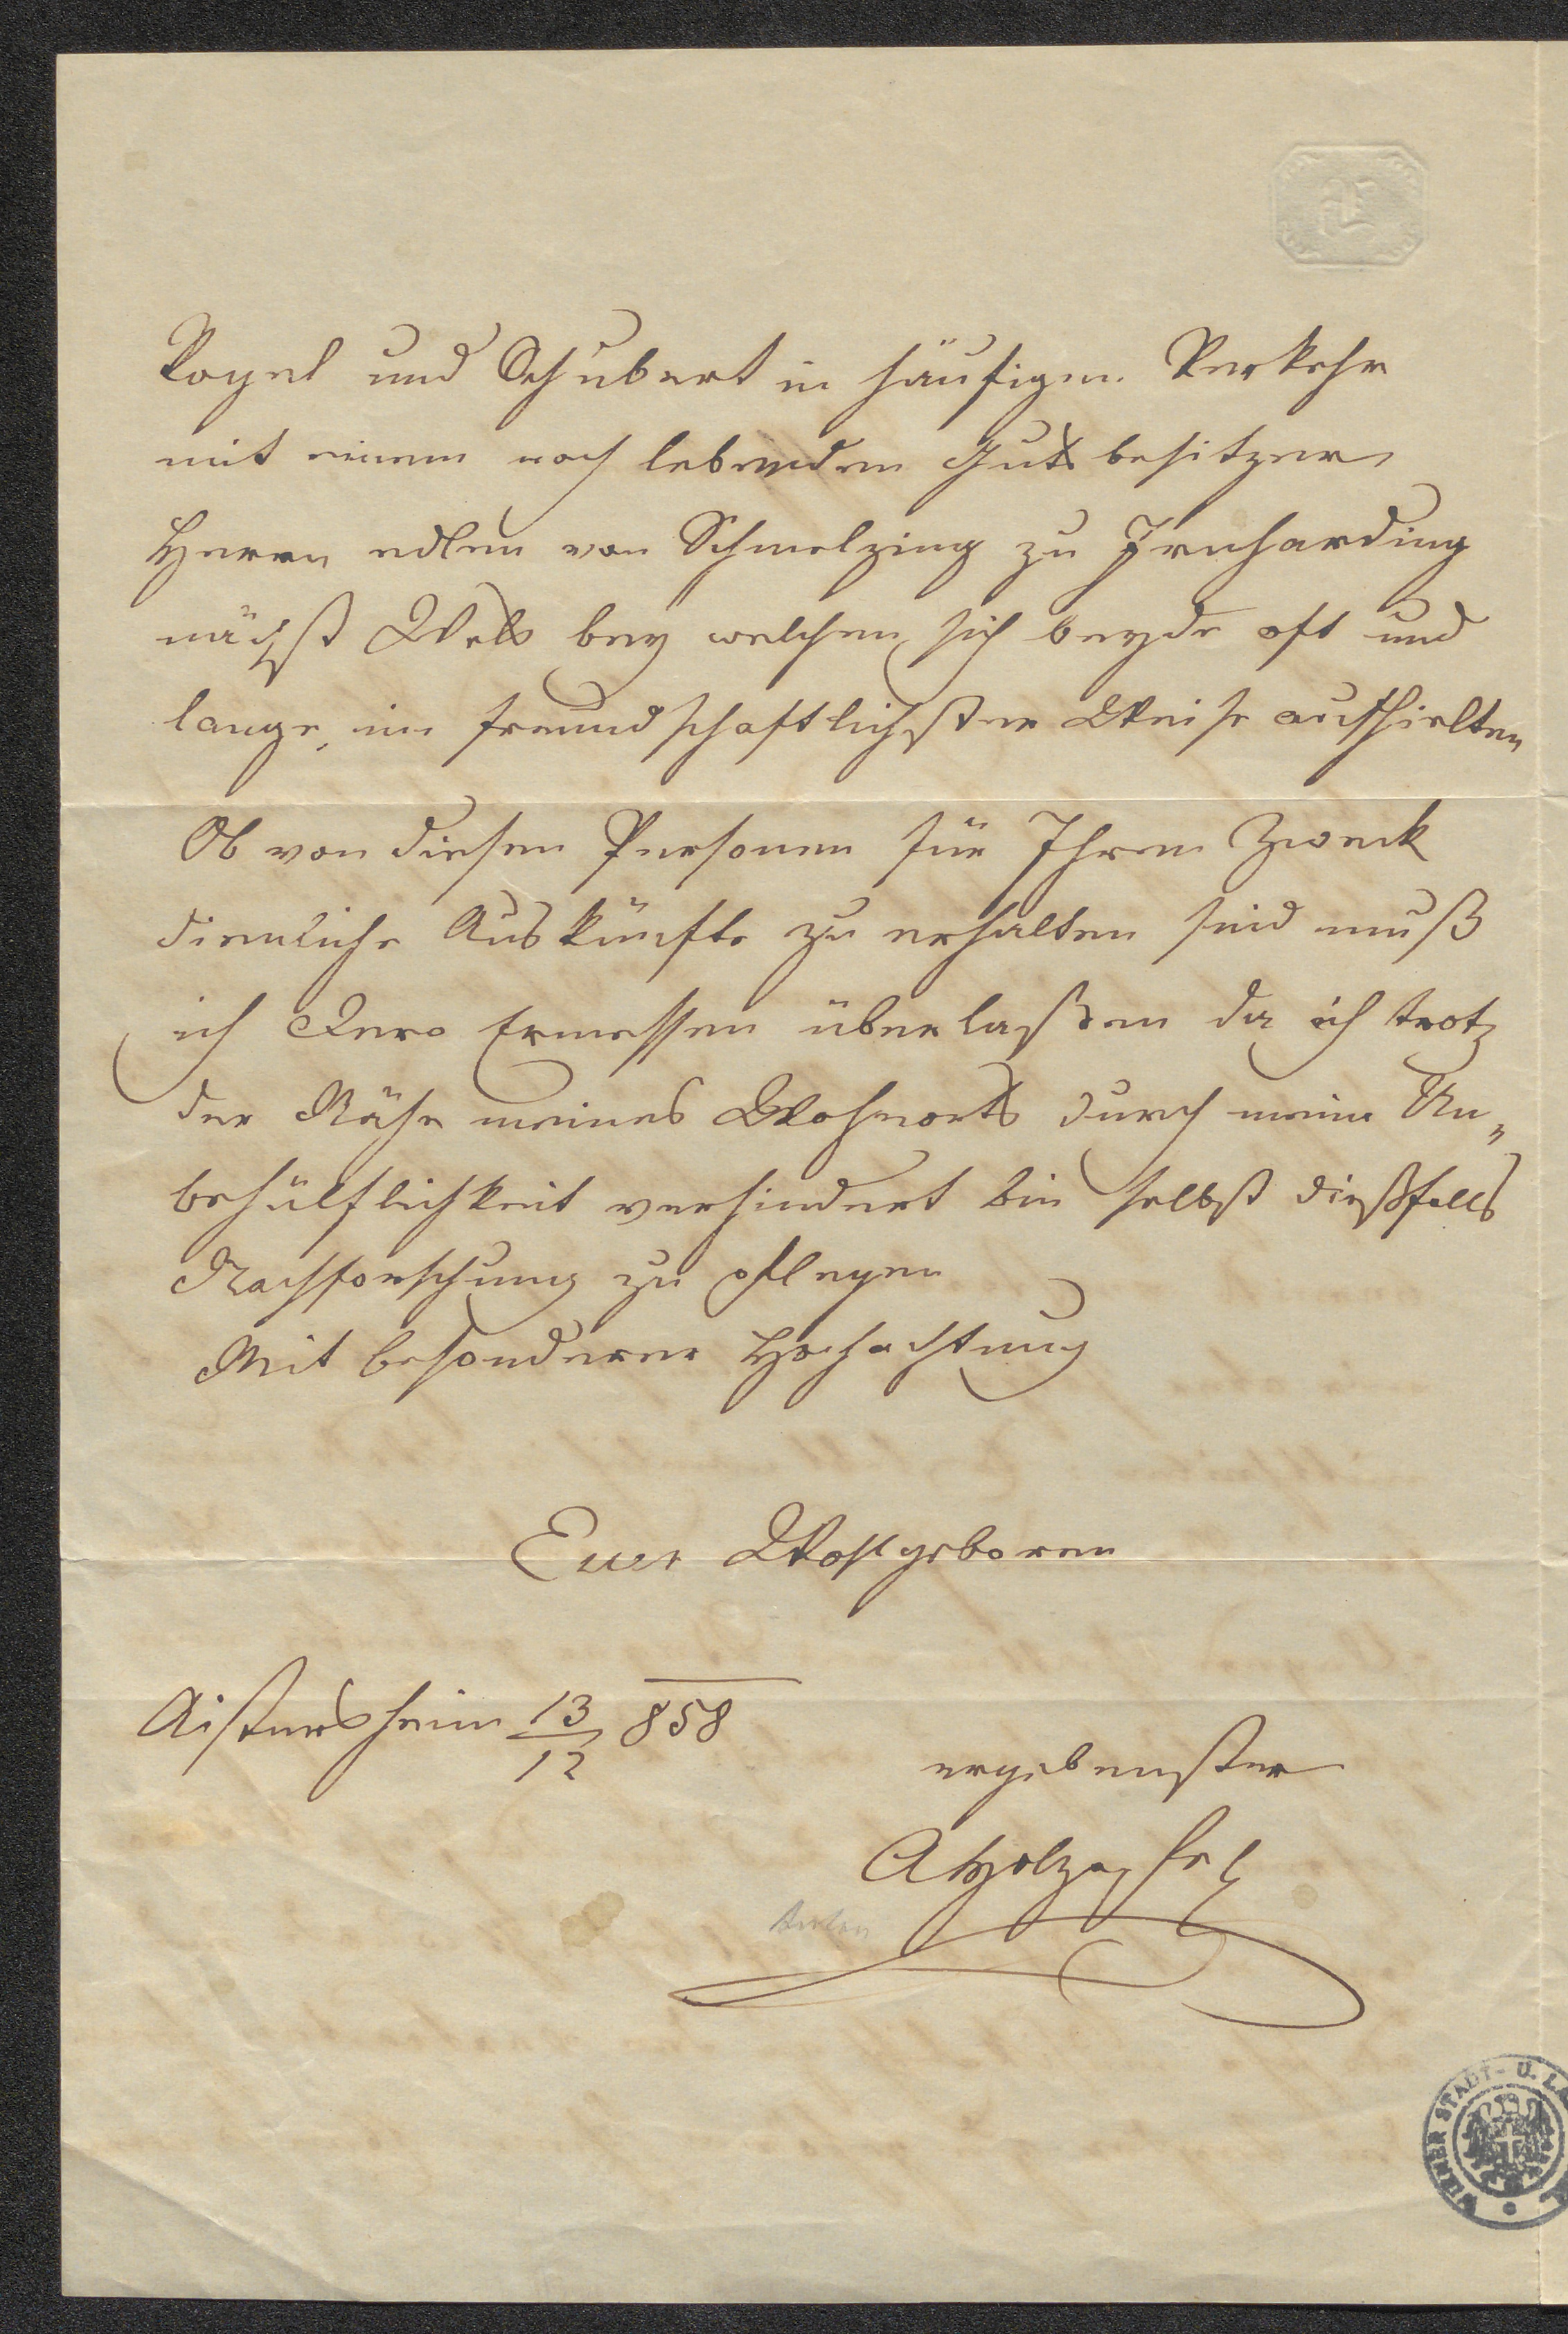 Vogel und Schubert in häufigen Verkehr
mit einem noch lebenden Gutsbesitzer
Herrn edlen von Schmelzing zu Irnharding
nächst Wels bey welchen sich beyde oft und
lange, in freundschaftlichster Weise aufhielten
Ob von diesen Personen für Ihren Zweck
dienliche Auskünfte zu erhalten sind muß
ich Dero Ermessen überlaßen da ich trotz
der Nähe meines Wohnorts durch meine Un„
behülflichkeit verhindert bin selbst dießfalls
Nachforschung zu pflegen
Mit besonderer Hochachtung
Euer Wohlgeboren
Aistersheim 13/12 858
ergebenster
A Holzapfel
Anton
WIENER STADT- U. LA